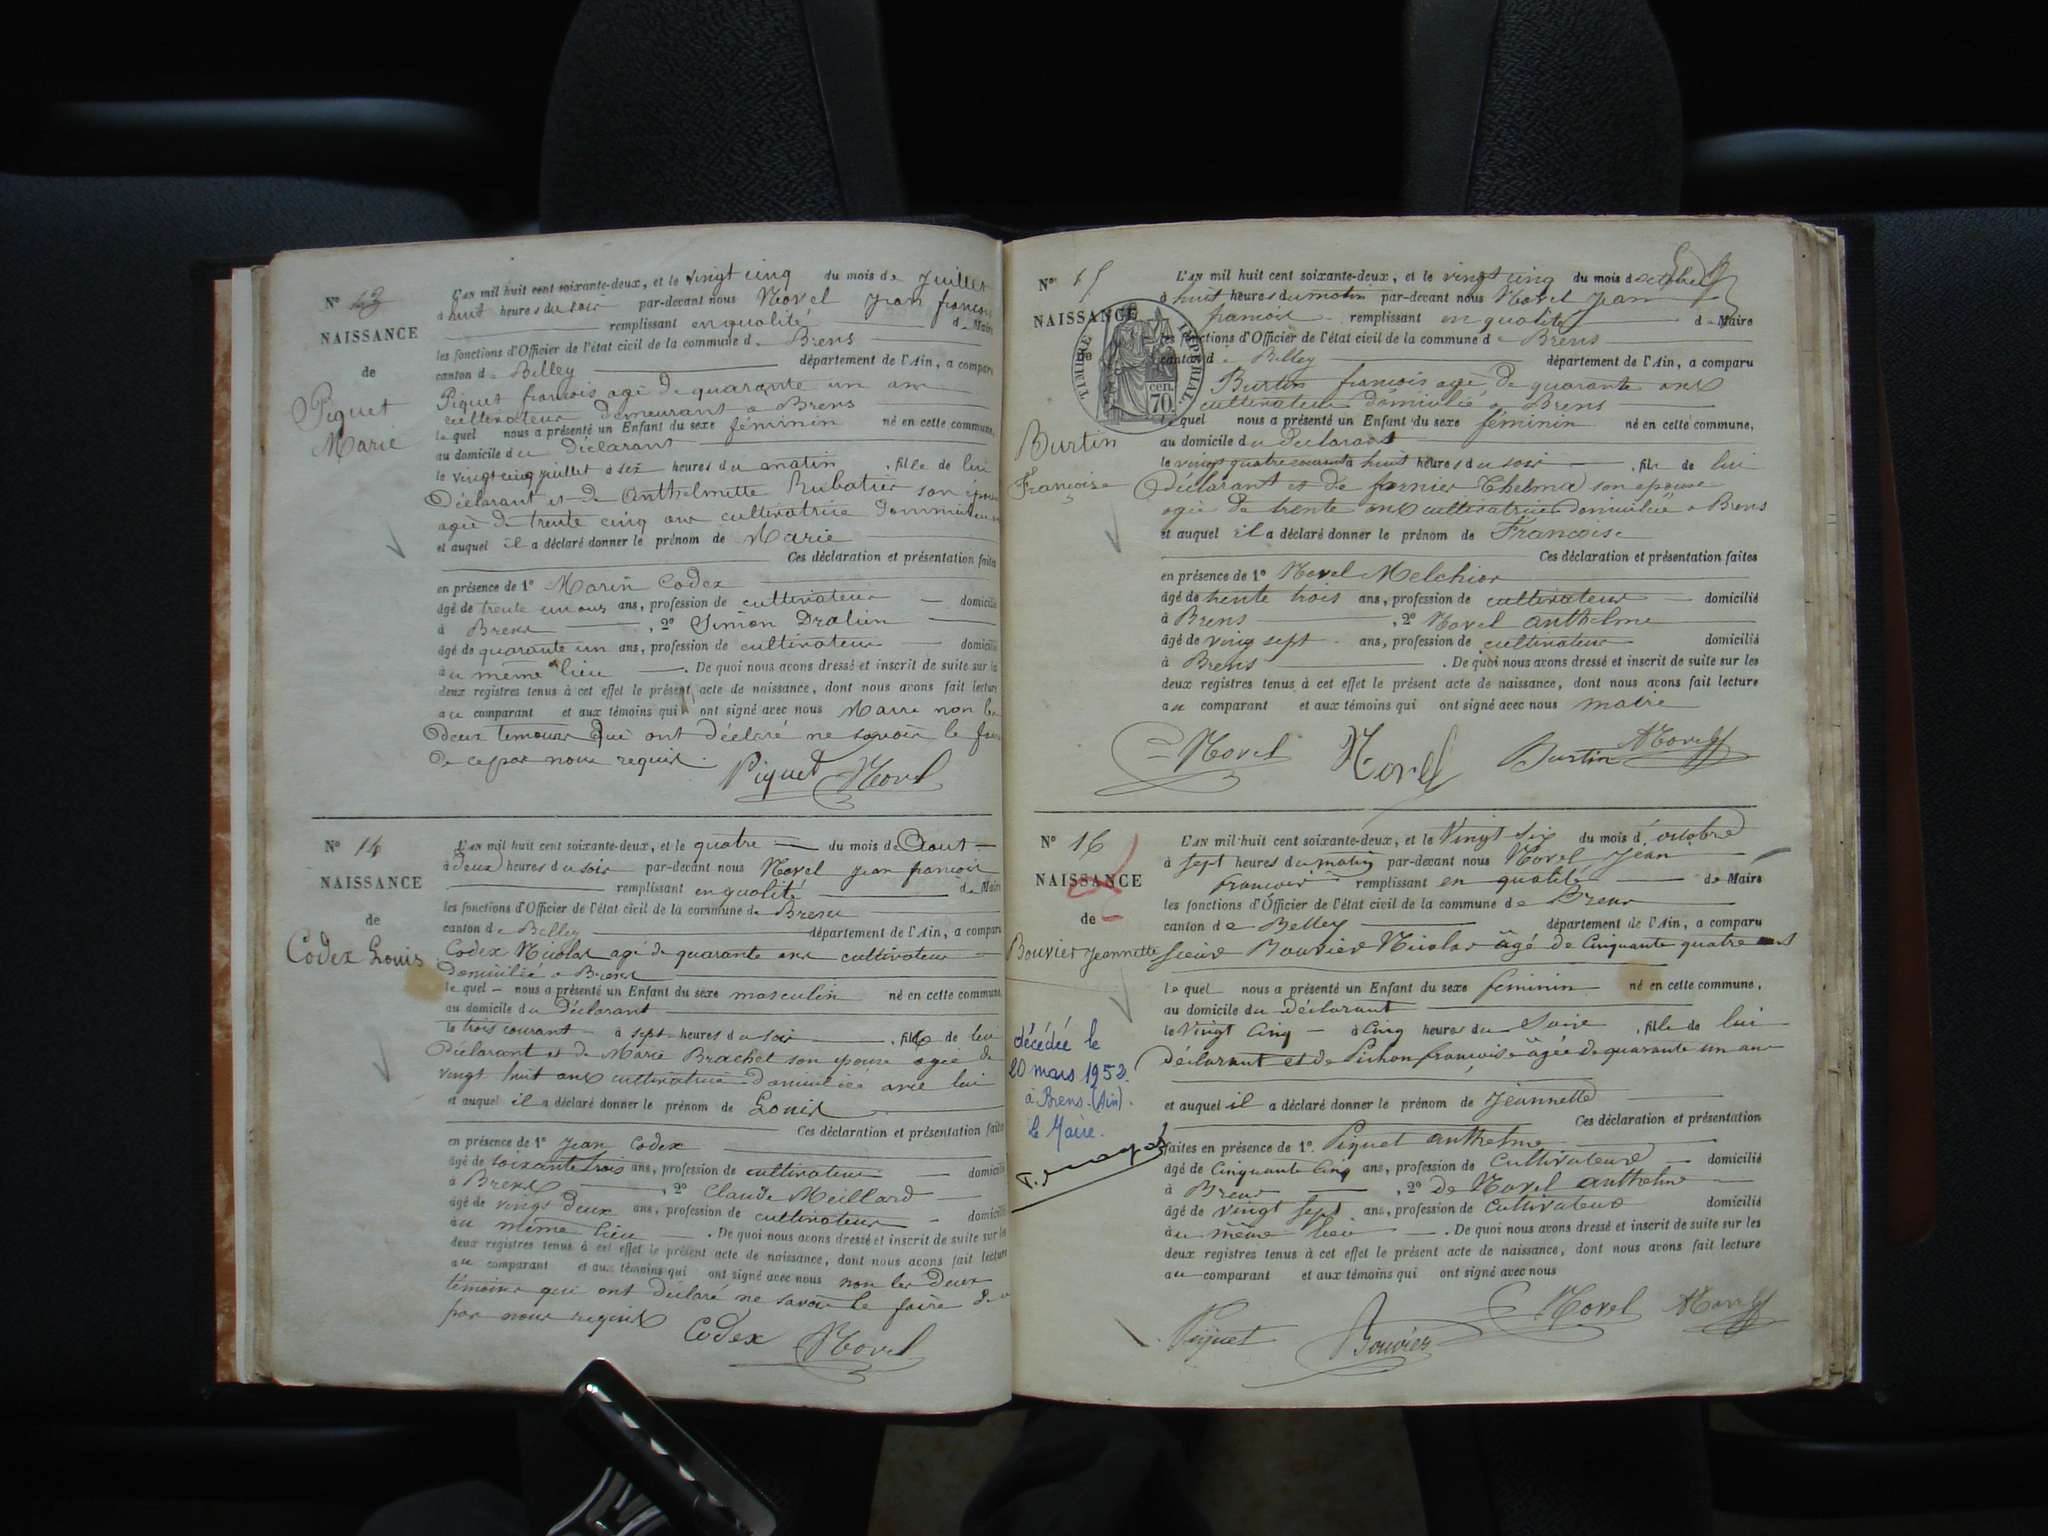 N° 13
NAISSANCE
de
Piquet
Marie
L'AN mil huit cent soixante-deux, et le vingt cinq du mois de Juillet
à huit heures du soir par-devant nous Novel Jean francois
remplissant en qualité d Maire
les fonctions d'Officier de l'état civil de la commune d Brens
canton d Belley département de l'Ain, a comparu
Piquet francois agé de quarante un ans
cultivateur demeurant a Brens
le quel nous a présenté un Enfant du sexe féminin né en cette commune,
au domicile du déclarant
le vingt cinq juillet à six heures du matin , fille de lui
Déclarant et de Anthelmette Rubatier son épouse
agée de trente cinq ans cultivatrice
et auquel il a déclaré donner le prénom de Marie
Ces déclaration et présentation faites
en présence de 1° Marin Codex
âgé de trente un ans ans, profession de cultivateur domicilié
à Brens , 2° Simon Dralin
âgé de quarante un ans, profession de cultivateur domicilié
au même lieu . De quoi nous avons dressé et inscrit de suite sur les
deux registres tenus à cet effet le présent acte de naissance, dont nous avons fait lecture
au comparant et aux témoins qui ont signé avec nous Maire non les
deux temoins qui ont déclaré ne savoir le faire
de ce par nous requis.
Piquet Novel
N° 14
NAISSANCE
de
Codex Louis
L'AN mil huit cent soixante-deux, et le quatre du mois de Aout
à deux heures du soir par-devant nous Novel Jean francois
remplissant en qualité de Maire
les fonctions d'Officier de l'état civil de la commune de Brens
canton de Belley département de l'Ain, a comparu
Codex Nicolas agé de quarante ans cultivateur
Domicilié a Brens
le quel nous a présenté un Enfant du sexe masculin né en cette commune,
au domicile du Déclarant
le trois courant à sept heures du soir , fils de lui
Déclarant et de Marie Brachet son epouse agée de
vingt huit ans cultivatrice domiciliée avec lui
et auquel il a déclaré donner le prénom de Louis
Ces déclaration et présentation faites
en présence de 1° Jean Codex
âgé de soixante trois ans, profession de cultivateur domicilié
à Brens , 2° Claude Meillard
âgé de vingt deux ans, profession de cultivateur domicilié
au même lieu . De quoi nous avons dressé et inscrit de suite sur les
deux registres tenus à cet effet le présent acte de naissance, dont nous avons fait lecture
au comparant et aux témoins qui ont signé avec nous non les deux
témoins qui ont déclaré ne savoir le faire de
par nous requis
Codex Novel
N° 15
NAISSANCE
de
TIMBRE IMPERIAL
70 cen.
Burtin
Françoise
L'AN mil huit cent soixante-deux, et le vingt cinq du mois d octobre
à huit heures du matin par-devant nous Novel Jean
francois remplissant en qualité d Maire
les fonctions d'Officier de l'état civil de la commune d Brens
canton d Belley département de l'Ain, a comparu
Burtin francois agé de quarante ans
cultivateur domicilié a Brens
le quel nous a présenté un Enfant du sexe féminin né en cette commune,
au domicile du Déclarant
le vingt quatre courant à huit heures du soir , fille de lui
Déclarant et de fornier Thelma son epouse
agée de trente ans cultivatrice domiciliée a Brens
et auquel il a déclaré donner le prénom de Francoise
Ces déclaration et présentation faites
en présence de 1° Novel Melchior
âgé de trente trois ans, profession de cultivateur domicilié
à Brens , 2° Novel anthelme
âgé de vingt sept ans, profession de cultivateur domicilié
à Brens . De quoi nous avons dressé et inscrit de suite sur les
deux registres tenus à cet effet le présent acte de naissance, dont nous avons fait lecture
au comparant et aux témoins qui ont signé avec nous maire
Novel Novel Burtin Novel
N° 16
NAISSANCE
de
Bouvier Jeannette
décédée le
20 mars 1952.
à Brens. (Ain).
le Maire.
L'AN mil huit cent soixante-deux, et le Vingt Six du mois d' octobre
à sept heures du matin par-devant nous Novel Jean
francois remplissant en qualité de Maire
les fonctions d'Officier de l'état civil de la commune de Brens
canton de Belley département de l'Ain, a comparu
sieur Bouvier Nicolas âgé de Cinquante quatre ans
le quel nous a présenté un Enfant du sexe féminin né en cette commune,
au domicile du déclarant
le Vingt Cinq à Cinq heures du Soir , fille de lui
déclarant et de Pichon françoise âgée de quarante un ans
et auquel il a déclaré donner le prénom de Jeannette
Ces déclaration et présentation
faites en présence de 1°. Piquet anthelme
âgé de Cinquante Cinq ans, profession de Cultivateur domicilié
à Brens , 2° de Novel anthelme
âgé de vingt sept ans, profession de Cultivateur domicilié
au même lieu . De quoi nous avons dressé et inscrit de suite sur les
deux registres tenus à cet effet le présent acte de naissance, dont nous avons fait lecture
au comparant et aux témoins qui ont signé avec nous
Piquet Bouvier Novel Novel